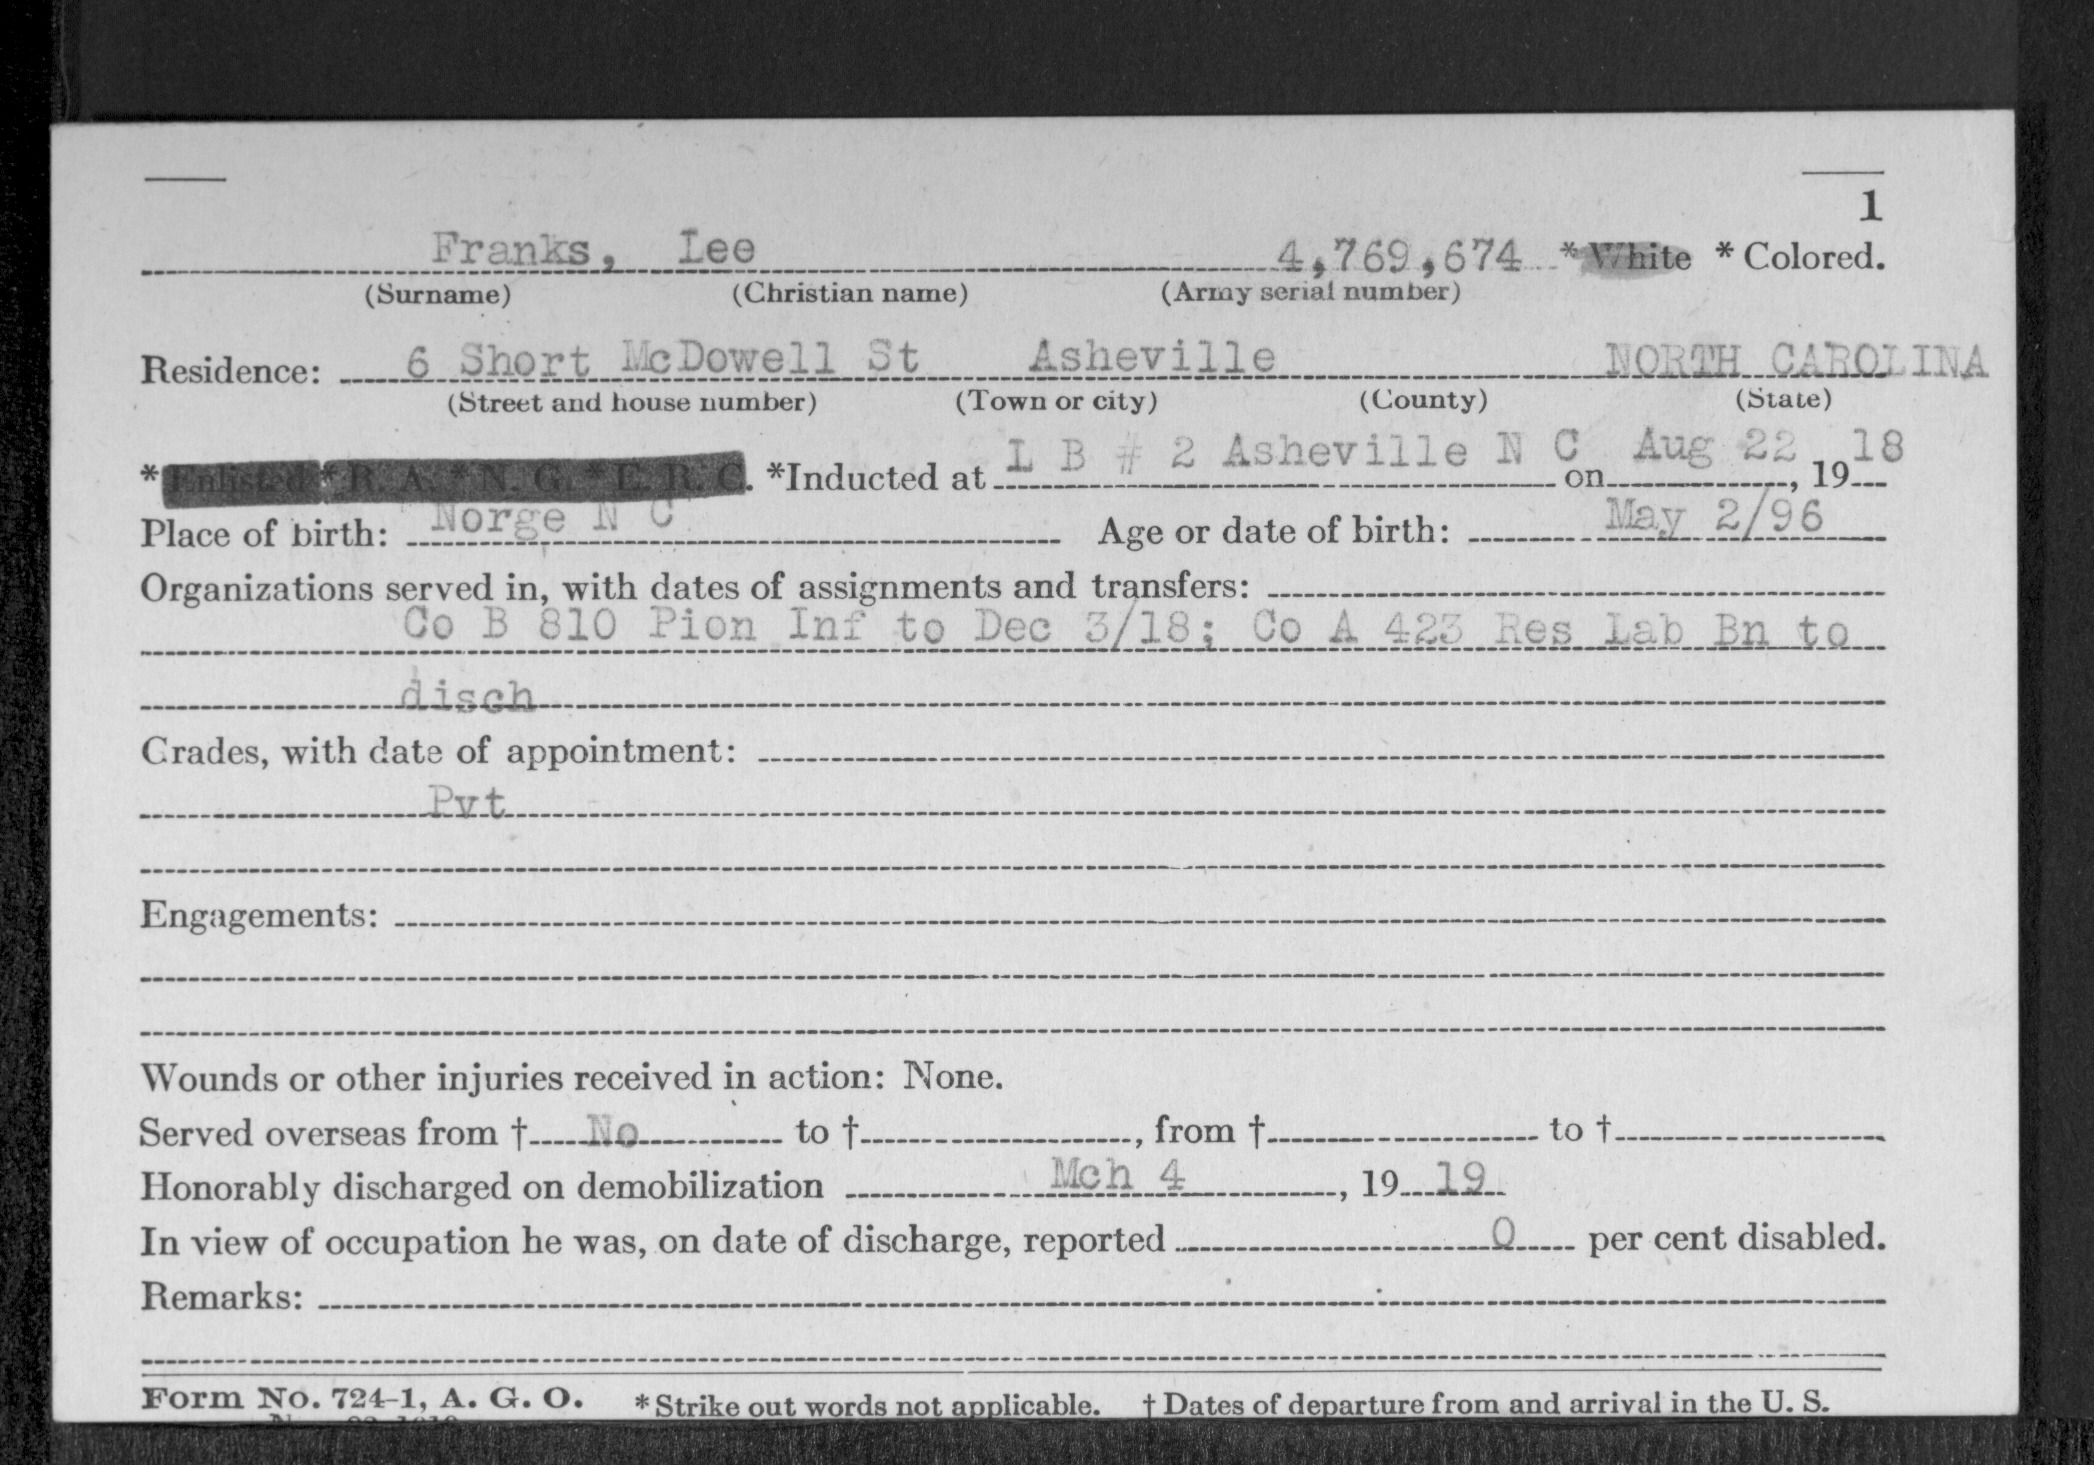 1
Franks, Lee 4,769,674 *White *Colored.
(Surname) (Christian name) (Army serial number)
Residence: 6 Short McDowell St Asheville NORTH CAROLINA
(Street and house number) (Town or city) (County) (State)
*Enlisted *R. A. *N. G. *E. R. C. *Inducted at L B # 2 Asheville N C on Aug 22, 1918
Place of birth: Norge N C Age or date of birth: May 2/96
Organizations served in, with dates of assignments and transfers:
Co B 810 Pion Inf to Dec 3/18; Co A 423 Res Lab Bn to
disch
Grades, with date of appointment:
Pvt
Engagements:
Wounds or other injuries received in action: None.
Served overseas from † No to †, from † to †
Honorably discharged on demobilization Mch 4, 1919
In view of occupation he was, on date of discharge, reported 0 per cent disabled.
Remarks:
Form No. 724-1, A. G. O. *Strike out words not applicable. † Dates of departure from and arrival in the U. S.